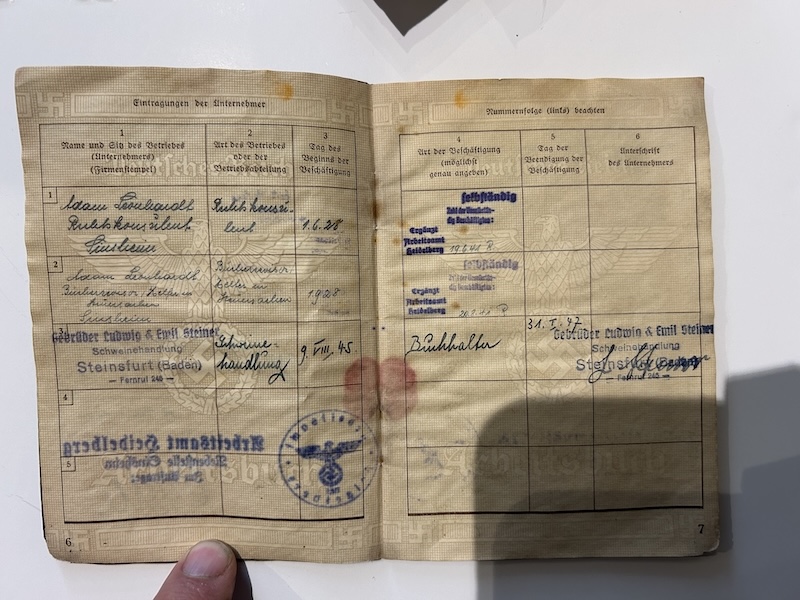 Eintragungen der Unternehmer
1
Name und Sitz des Betriebes
(Unternehmers)
(Firmenstempel)
2
Art des Betriebes
oder der
Betriebsabteilung
3
Tag des
Beginns der
Beschäftigung
1
Adam Leonhardt
Rechtskonsulent
Sinsheim
Rechtskonsu-
lent
1.6.28
2
Adam Leonhardt
Sinsheim
1928
3
Gebrüder Ludwig & Emil Steiner
Schweinehandlung
Steinsfurt (Baden)
— Fernruf 246 —
Schweine-
handlung
9. VIII. 45.
4
Arbeitsamt Heidelberg
Nebenstelle Sinsheim
5
6
Nummernfolge (links) beachten
4
Art der Beschäftigung
(möglichst
genau angeben)
5
Tag der
Beendigung der
Beschäftigung
6
Unterschrift
des Unternehmers
selbständig
Ergänzt
Arbeitsamt
Heidelberg
selbständig
Ergänzt
Arbeitsamt
Heidelberg
Buchhalter
31. I. 47
Gebrüder Ludwig & Emil Steiner
Schweinehandlung
Steinsfurt (Baden)
— Fernruf 246 —
7